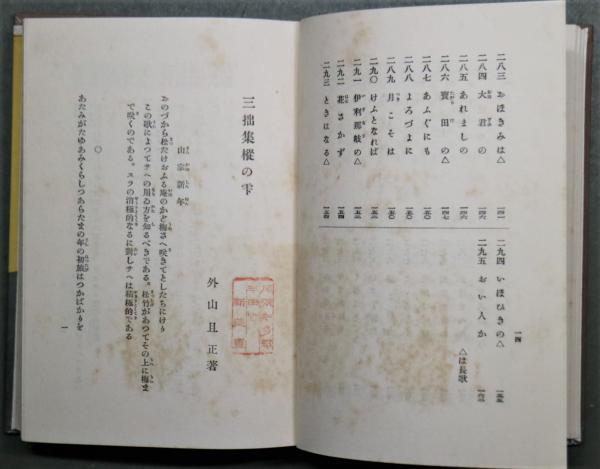 二八三 おほきみは△ 一四一
二八四 大君の 一四六
二八五 あれましの 一四六
二八六 寶田の△ 一四七
二八七 あふぐにも 一五〇
二八八 よろづよに 一五〇
二八九 月こそは 一五〇
二九〇 けふとなれば 一五二
二九一 伊利那岐の△ 一五三
二九二 花さかず 一五四
二九三 ときはなる△ 一五四
二九四 いほひきの△ 一五五
二九五 おい人か 一六二
△は長歌
一四
三拙集樅の雫
外山且正著
山家新年
おのづから松たけおふる庵のかど梅さへ咲きてとしたちにけり
この歌によつてサヘの用ゐ方を知るべきである。松竹があつてその上に梅ま
で咲くのである。スラの消極的なるに對しサヘは積極的である
〇
あたみがたゆあみくらしつあらたまの年の初旅はつかばかりを
一